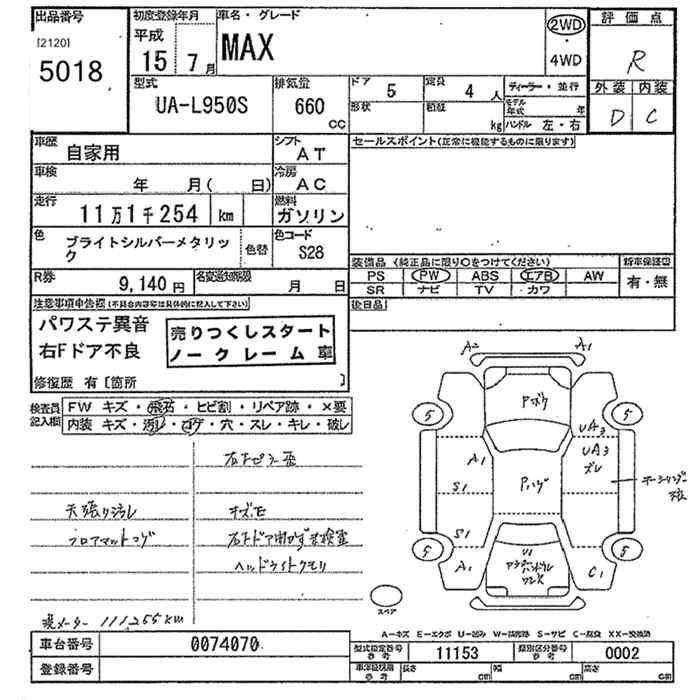 出品番号
[2120]
5018
初度登録年月
平成
15年 7月
車名・グレード
MAX
2WD
・
4WD
評価点
R
外装 内装
D C
型式
UA-L950S
排気量
660
CC
ドア 5
定員 4 人
形状
積載 kg
ディーラー・並行
モデル年式 年
ハンドル 左・右
車歴 自家用
シフト AT
車検 年 月( 日)
冷房 AC
走行 11万1千254 km
燃料 ガソリン
色 ブライトシルバーメタリック
色替
色コード S28
R券 9,140円
名変通知期限 月 日
セールスポイント(正常に機能するものに限ります)
装備品 (純正品に限り○をつけてください)
PS PW ABS エアB AW
SR ナビ TV カワ
新車保証書
有・無
後日品
注意事項申告欄(不具合内容等は具体的に記入して下さい)
パワステ異音
右Fドア不良
売りつくしスタート
ノークレーム車
修復歴 有〔箇所 〕
検査員記入欄
FW キズ・飛石・ヒビ割・リペア跡・×要
内装 キズ・汚れ・コゲ・穴・スレ・キレ・破レ
天張り汚れ
フロアマットコゲ
キズ它
ヘッドライトクモリ
現メーター 111255km
A2 A1
5 5
UA3
A1
UA3
ズレ
S1
S1
A1
C1
5 5
スペア
A−キズ E−エクボ U−凹み W−補修跡 S−サビ C−腐食 XX−交換済
車台番号 0074070
登録番号
型式指定番号 参考 11153
類別区分番号 参考 0002
車検証現用 参考 長さ cm 幅 cm 高さ cm